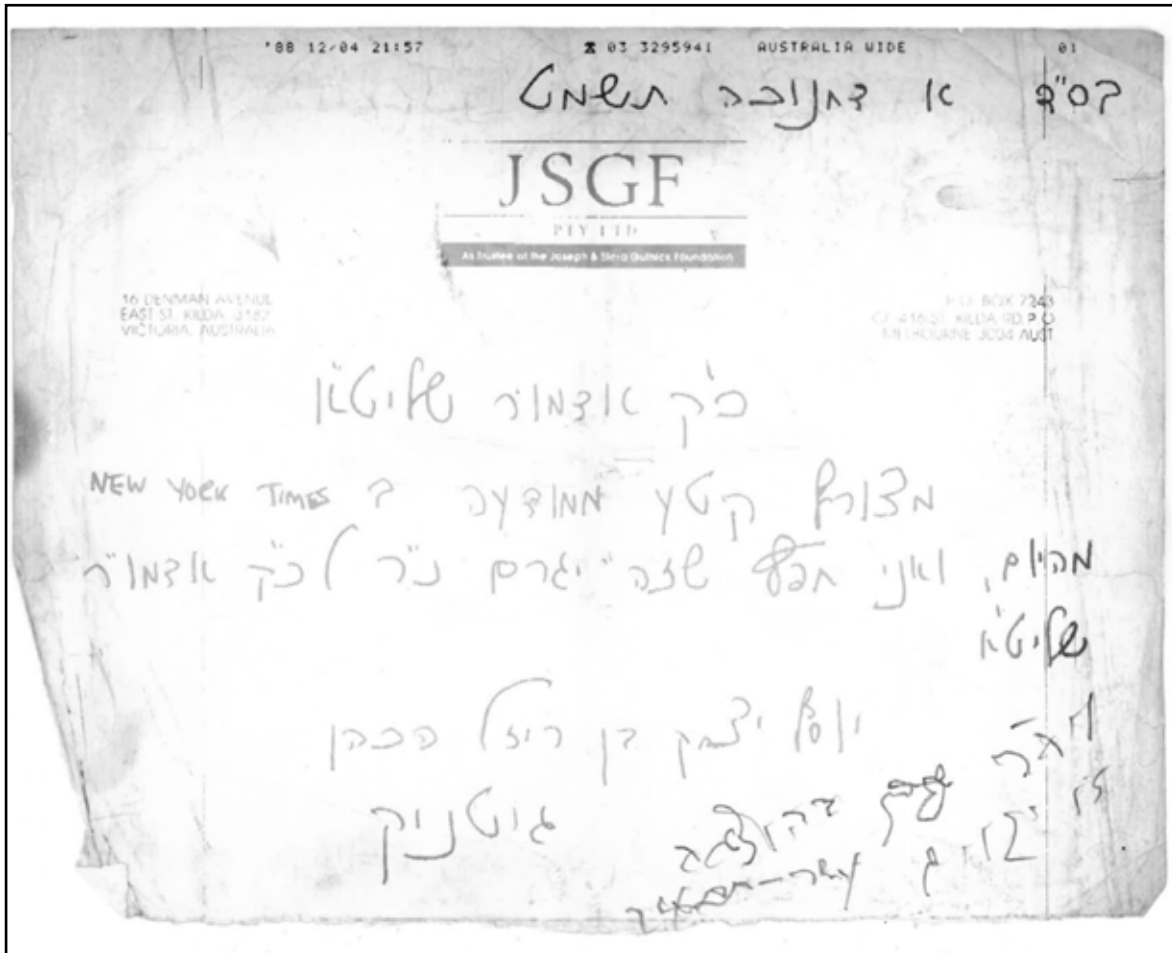 '88 12/04 21:57 ☎ 03 3295941 AUSTRALIA WIDE 01
בס"ד א דחנוכה תשמט
JSGF
PTY LTD
As Trustee of the Joseph & Stera Gutnick Foundation
16 DENMAN AVENUE
EAST ST. KILDA, 3182
VICTORIA, AUSTRALIA
P.O. BOX 7243
416 ST. KILDA RD. P.O
MELBOURNE 3004 AUST
כ"ק אדמו"ר שליט"א
מצורף קטע ממודעה ב NEW YORK TIMES
מהיום, ואני שזה יגרם נ"ר לכ"ק אדמו"ר
שליט"א
יוסף יצחק בן ריזל הכהן
גוטניק